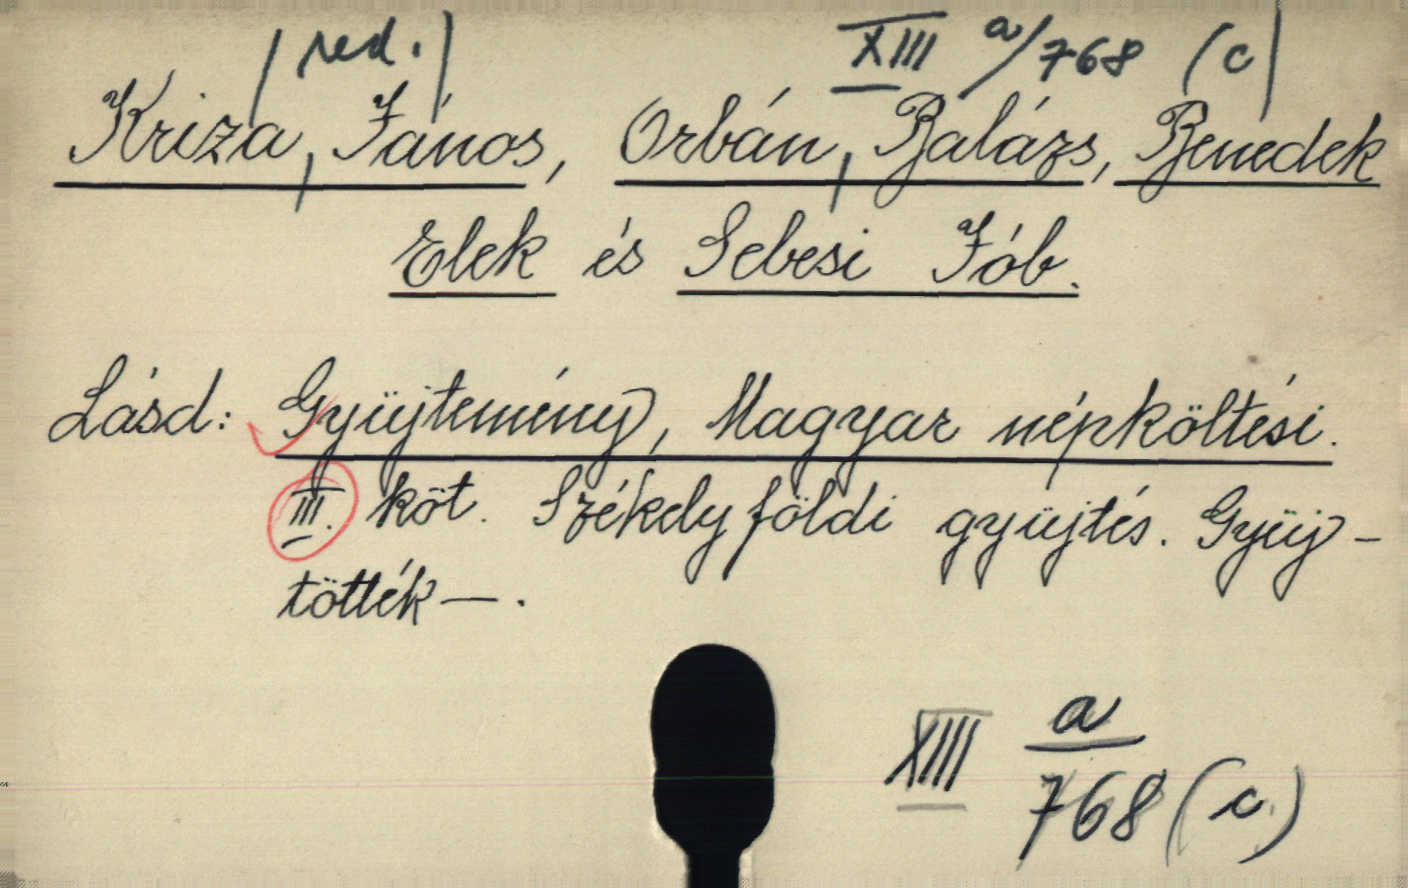 /red./ XIII a/768 (c)
Kriza, János, Orbán, Balázs, Benedek
Elek és Sebesi Jób.
Lásd: Gyüjtemény, Magyar népköltési.
III. köt. Székelyföldi gyüjtés. Gyüj-
tötték — .
XIII a
768 (c.)